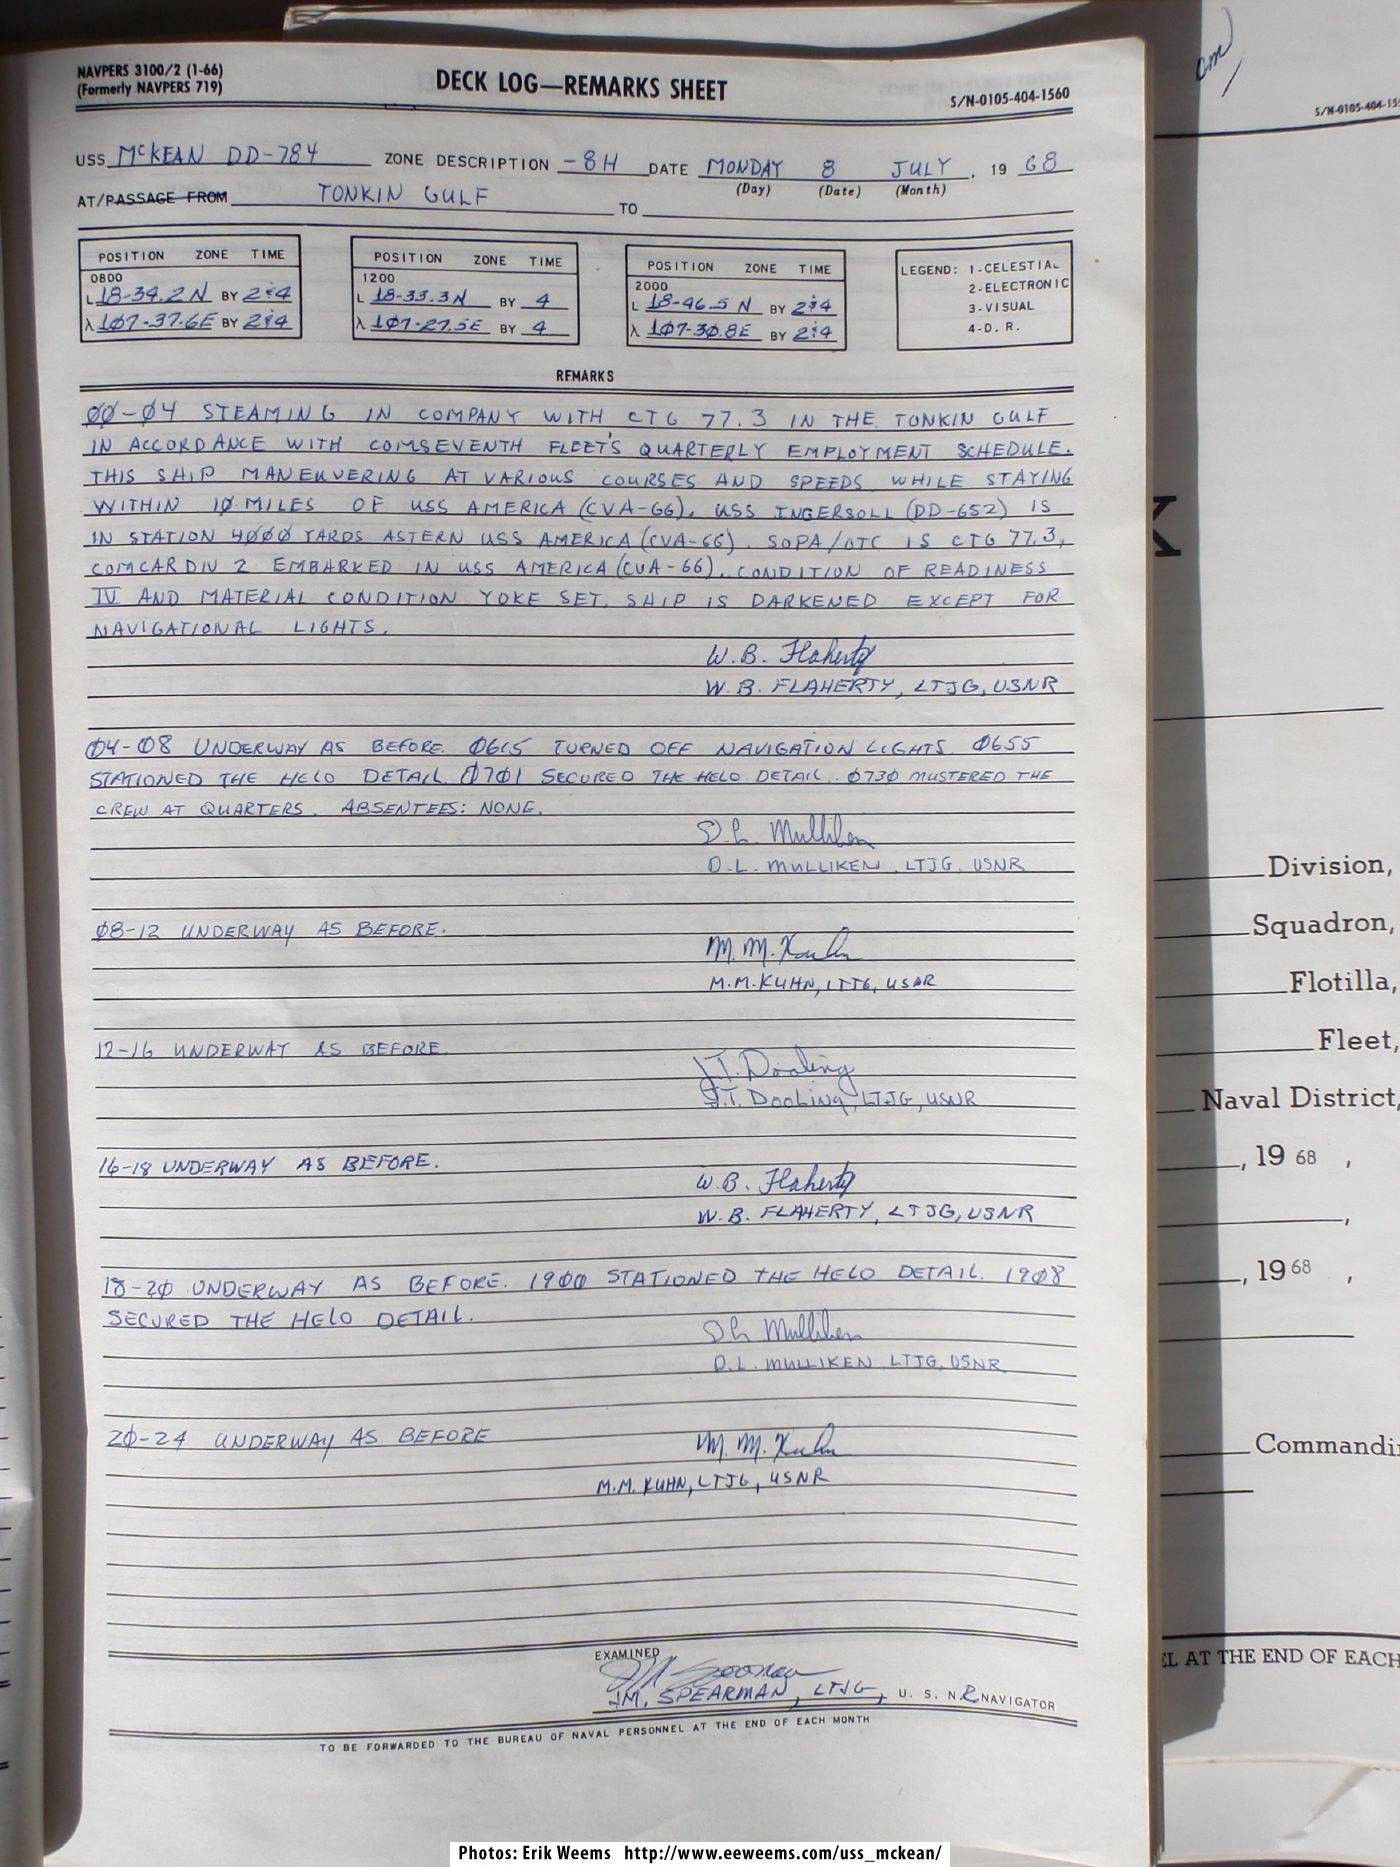 NAVPERS 3100/2 (1-66)
(Formerly NAVPERS 719)
DECK LOG—REMARKS SHEET
S/N-0105-404-1560
USS McKEAN DD-784 ZONE DESCRIPTION -8H DATE MONDAY 8 JULY, 19 68
(Day) (Date) (Month)
AT/PASSAGE FROM TONKIN GULF TO
POSITION ZONE TIME
0800
L 18-34.2 N BY 2&4
λ 107-37.6E BY 2&4
POSITION ZONE TIME
1200
L 18-33.3 N BY 4
λ 107-27.5E BY 4
POSITION ZONE TIME
2000
L 18-46.5 N BY 2&4
λ 107-30.8E BY 2&4
LEGEND: 1-CELESTIAL
2-ELECTRONIC
3-VISUAL
4-D. R.
REMARKS
00-04 STEAMING IN COMPANY WITH CTG 77.3 IN THE TONKIN GULF
IN ACCORDANCE WITH COMSEVENTH FLEET'S QUARTERLY EMPLOYMENT SCHEDULE.
THIS SHIP MANEUVERING AT VARIOUS COURSES AND SPEEDS WHILE STAYING
WITHIN 10 MILES OF USS AMERICA (CVA-66). USS INGERSOLL (DD-652) IS
IN STATION 4000 YARDS ASTERN USS AMERICA (CVA-66). SOPA/OTC IS CTG 77.3,
COMCARDIV 2 EMBARKED IN USS AMERICA (CVA-66). CONDITION OF READINESS
IV AND MATERIAL CONDITION YOKE SET. SHIP IS DARKENED EXCEPT FOR
NAVIGATIONAL LIGHTS.
W. B. Flaherty
W. B. FLAHERTY, LTJG, USNR
04-08 UNDERWAY AS BEFORE. 0615 TURNED OFF NAVIGATION LIGHTS. 0655
STATIONED THE HELO DETAIL. 0701 SECURED THE HELO DETAIL. 0730 MUSTERED THE
CREW AT QUARTERS. ABSENTEES: NONE.
D. L. Mulliken
D. L. MULLIKEN, LTJG, USNR
08-12 UNDERWAY AS BEFORE.
M. M. Kuhn
M. M. KUHN, LTJG, USNR
12-16 UNDERWAY AS BEFORE.
J. T. Dooling
J. T. Dooling, LTJG, USNR
16-18 UNDERWAY AS BEFORE.
W. B. Flaherty
W. B. FLAHERTY, LTJG, USNR
18-20 UNDERWAY AS BEFORE. 1900 STATIONED THE HELO DETAIL. 1908
SECURED THE HELO DETAIL.
D L Mulliken
D. L. MULLIKEN, LTJG, USNR
20-24 UNDERWAY AS BEFORE
M. M. Kuhn
M. M. KUHN, LTJG, USNR
EXAMINED
J.M. SPEARMAN, LTJG, U. S. N R NAVIGATOR
TO BE FORWARDED TO THE BUREAU OF NAVAL PERSONNEL AT THE END OF EACH MONTH
Division,
Squadron,
Flotilla,
Fleet,
Naval District,
, 19 68 ,
,
, 19 68 ,
AT THE END OF EACH
Photos: Erik Weems http://www.eeweems.com/uss_mckean/